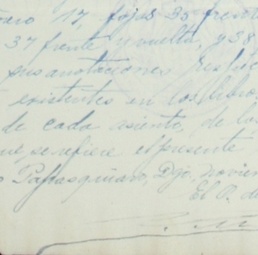 17, fojas 35 frente
37 frente y vuelta, y 38
sus anotaciones respec
existentes en los libros
de cada asiento, de los
que se refiere el presente
Papasquiaro, Dgo. noviem
El O. de